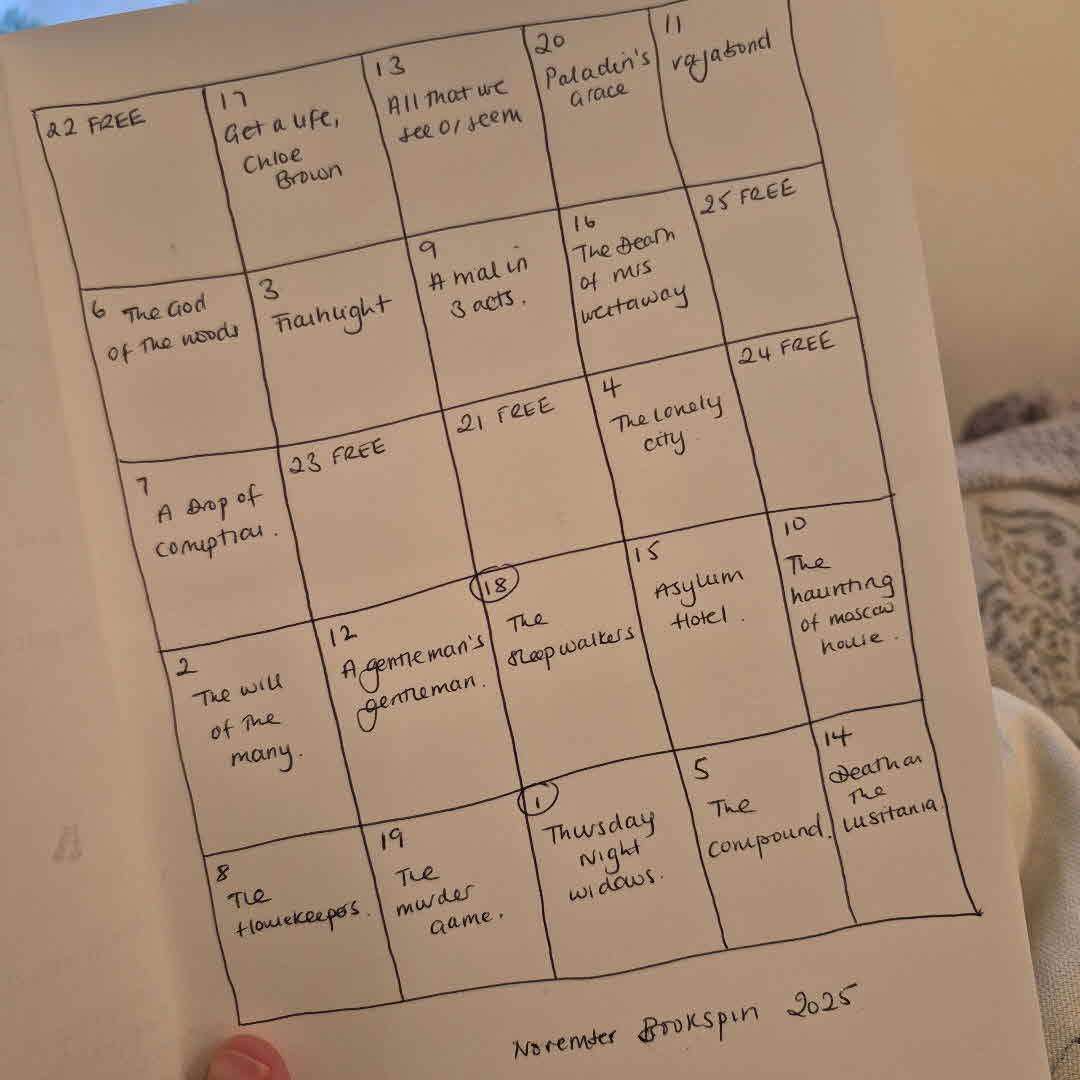 22 FREE
17
Get a Life,
Chloe
Brown
13
All that we
see or seem
20
Paladin's
Grace
11
vagabond
6 The God
of the woods
3
Flashlight
9
A mal in
3 acts.
16
The Death
of mrs
westaway
25 FREE
7
A Drop of
corruption.
23 FREE
21 FREE
4
The lonely
city.
24 FREE
2
The will
of the
many.
12
A gentleman's
gentleman.
18
The
Sleepwalkers
15
Asylum
Hotel.
10
The
haunting
of moscow
house.
8
The
Housekeepers.
19
The
murder
Game.
1
Thursday
Night
widows.
5
The
compound.
14
Death on
The
Lusitania.
November Bookspin 2025